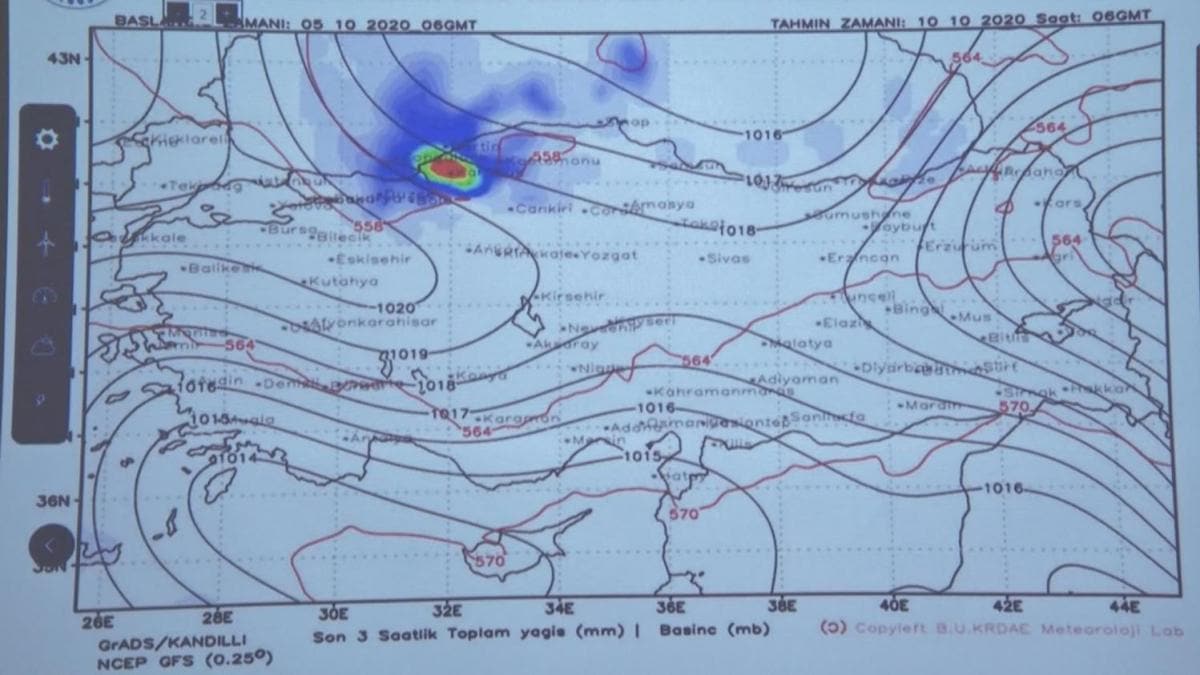 BASLANG ZAMANI: 05 10 2020 06GMT
TAHMIN ZAMANI: 10 10 2020 Saat: 06GMT
2
43N
564
Sinop
1016
564
Kirklareli
Bartin
558
Kastamonu
Samsun
1017
Giresun
Trabzon
Rize
Artvin
Ardahan
Tekirdag
Istanbul
Duzce
Bolu
Kars
Yalova
Cankiri
Corum
Amasya
558
Tokat
1018
Gumushane
Bayburt
Bursa
Bilecik
564
Erzurum
Ankara
Kirikkale
Yozgat
Sivas
Erzincan
Agri
Eskisehir
Balikesir
Kutahya
Kirsehir
Tunceli
1020
Bingol
Mus
Igdir
Afyonkarahisar
Usak
Nevsehir
Kayseri
Elazig
Van
Bitlis
Manisa
564
Aksaray
Malatya
1019
564
Nigde
Diyarbakir
Batman
Siirt
Konya
Adiyaman
1016
Aydin
Denizli
Isparta
1018
Kahramanmaras
Sirnak
Hakkari
1017
1016
Mardin
570
1015
Mugla
Karaman
Sanliurfa
564
Adana
Osmaniye
Gaziantep
Antalya
Mersin
Kilis
1014
1015
Hatay
1016
36N
570
570
35N
26E 28E 30E 32E 34E 36E 38E 40E 42E 44E
GrADS/KANDILLI
Son 3 Saatlik Toplam yagis (mm) | Basinc (mb)
(Ɔ) Copyleft B.U.KRDAE Meteoroloji Lab
NCEP GFS (0.25º)